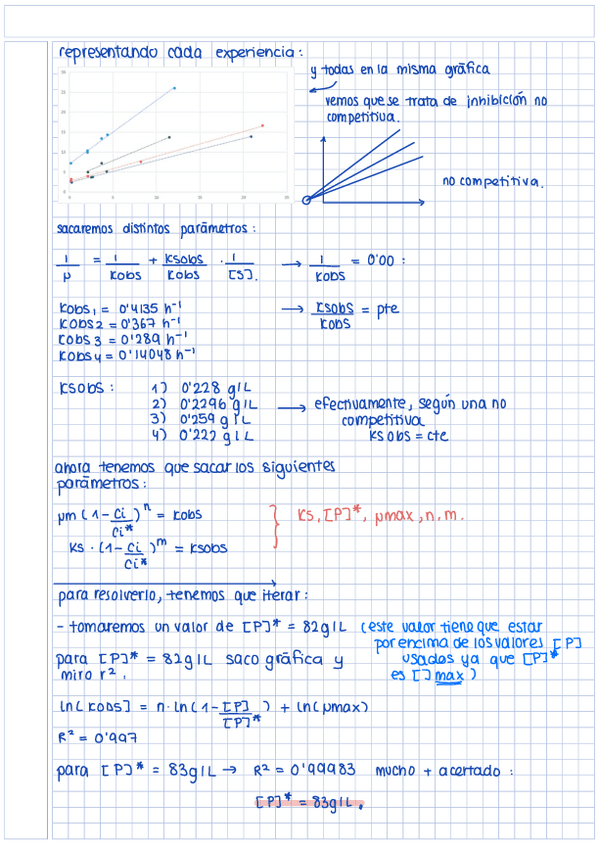 representando cada experiencia:
y todas en la misma gráfica
vemos que se trata de inhibición no
competitiva.
no competitiva.
sacaremos distintos parámetros:
1/μ = 1/Kobs + Ksobs/Kobs · 1/[S]. → 1/Kobs = 0'00 :
Kobs1 = 0'4135 h⁻¹ → Ksobs/Kobs = pte
Kobs2 = 0'367 h⁻¹
Kobs3 = 0'289 h⁻¹
Kobs4 = 0'14048 h⁻¹
Ksobs: 1) 0'228 g/L
2) 0'2296 g/L → efectivamente, según una no
3) 0'259 g/L competitiva
4) 0'222 g/L Ksobs = cte
ahora tenemos que sacar los siguientes
parámetros:
μm (1 - Ci/Ci*)ⁿ = Kobs } Ks, [P]*, μmax, n, m.
Ks · (1 - Ci/Ci*)ᵐ = Ksobs
para resolverlo, tenemos que iterar:
- tomaremos un valor de [P]* = 82g/L (este valor tiene que estar
por encima de los valores [P]
para [P]* = 82g/L saco gráfica y usados ya que [P]*
miro r², es [] max)
ln[Kobs] = n·ln(1-[P]/[P]*) + ln(μmax)
R² = 0'997
para [P]* = 83g/L → R² = 0'99983 mucho + acertado:
[P]* = 83g/L.